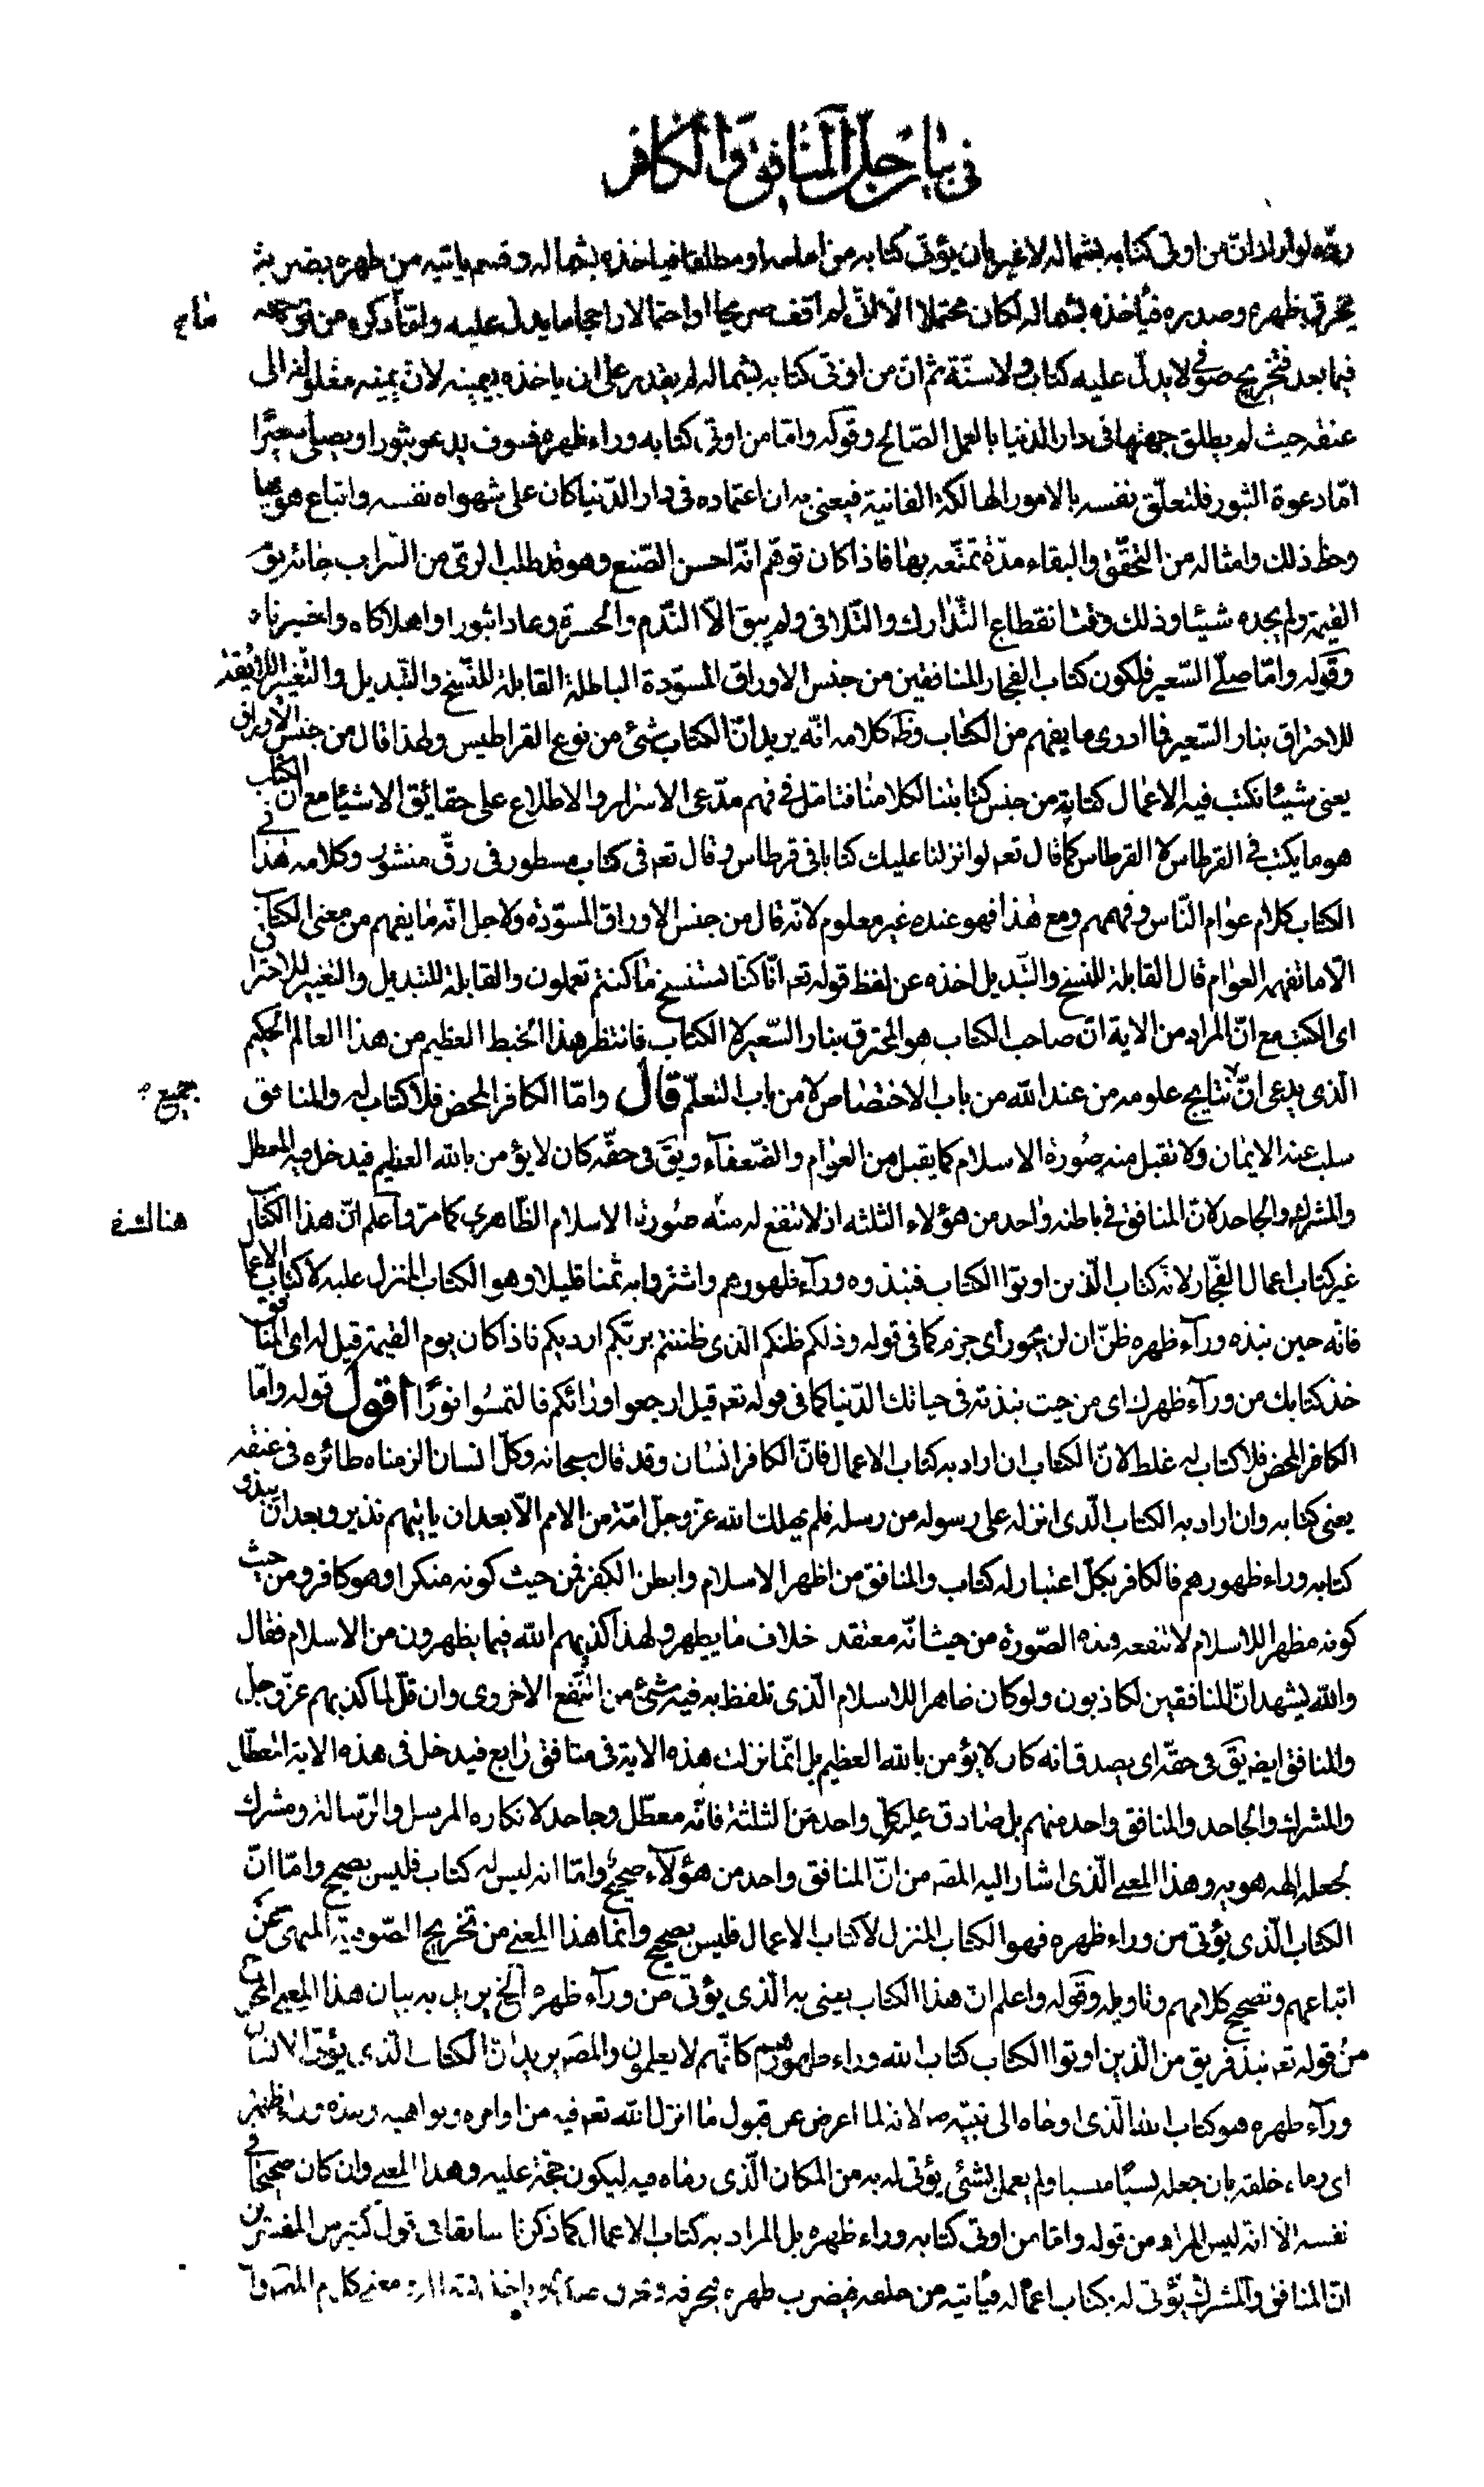 في بيان حال المنافق والكافر
لو اراد ان من اوتى كتابه بشماله لا غير بان يؤتى كتابه من امامه او مطلقا فياخذه بشماله وقسم ياتيه من ظهره يضرب
فيخرق ظهره وصدره فيأخذه بشماله لكان محتملا الا انى لم اقف صريحا او احتمالا راجحا ما يدل عليه واما ما ذكره من توجيهه
فيما بعد فتخريج صوفي لا يدلّ عليه كتاب ولا سنّة ثم انّ من اوتى كتابه بشماله لم يقدر على ان ياخذه بيمينه لان يمينه مغلولة الى
عنقه حيث لم يطلق جهتها في دار الدنيا بالعمل الصّالح وقوله وامّا من اوتى كتابه وراء ظهره فسوف يدعو ثبورا ويصلى سعيرًا
امّا دعوة الثبور فلتعلّق نفسه بالامور الهالكة الفانية فيعنى به ان اعتماده في دار الدّنيا كان على شهواه نفسه واتباع هويها
وحظ ذلك وامثاله من التحقّق والبقاء مدّة تمتّعه بها فاذا كان توهّم انّه احسن الصّنع وهو قد طلب الرىّ من السّراب جائه يوم
القيمة ولم يجده شيئا وذلك وقت انقطاع التّدارك والتّلافى ولم يبق الاّ النّدم والحسرة دعا واثبورا واهلاكاه واخسيرتاه
وقوله وامّا صلىّ السّعير فلكون كتاب الفجار المنافقين من جنس الاوراق المسوّدة الباطلة القابلة للنّسخ والتّبديل والتّغيير اللايقة
للاحتراق بنار السّعير فما ادرى ما يفهم من الكتاب وظ كلامه انّه يريد انّ الكتاب شئ من نوع القراطيس ولهذا قال من جنس الاوراق
يعنى شيئا نكتب فيه الاعمال كتابة من جنس كتابتنا لكلامنا فتامّل في فهم مدّعى الاسرار والاطلاع على حقائق الاشيئا مع ان الكتاب
هو ما يكتب في القرطاس لا القرطاس كما قال تعه لو انزلنا عليك كتابا في قرطاس وقال تعه في كتاب مسطور في رقّ منشور وكلامه هذا في
الكتاب كلام عوام النّاس وفهمهم ومع هذا فهو عنده غير معلوم لانّه قال من جنس الاوراق المسوّدة ولاجل انّه ما يفهم من معنى الكتاب
الاّ ما تفهمه العوام قال القابلة للنسخ والتّبديل اخذه عن لفظ قوله تعه انّا كنّا نستنسخ ما كنتم تعملون والقابلة للتبديل والتغيير للاحتراق
اى الكتب مع انّ المراد من الاية انّ صاحب الكتاب هو المحترق بنار السّعير لا الكتاب فانتظر هذا الخبط العظيم من هذا العالم الحكيم
الّذى يدعى انّ نتايج علومه من عند الله من باب الاختصاص لا من باب التعلّم قال وامّا الكافر المحض فلا كتاب له والمنافق
سلب عنه الايمان ولا تقبل منه صورة الاسلام كما يقبل من العوام والضّعفآء ويق في حقّه كان لا يؤمن بالله العظيم فيدخل فيه المعطل
والمشرك والجاحد لانّ المنافق في باطنه واحد من هؤلاء الثلثه اذ لا تنفع له منه صورة الاسلام الظّاهرى كما مرّ واعلم انّ هذا الكتاب
غير كتاب اعمال الفجّار لانه كتاب الّذين اوتوا الكتاب فنبذوه ورآء ظهورهم واشتروا به ثمنا قليلا وهو الكتاب المنزل عليه لا كتاب الاعمال
فانّه حين نبذه ورآء ظهره ظنّ ان لن يحور اى جزم كما في قوله وذلكم ظنكم الذى ظننتم بربّكم ارديكم فاذا كان يوم القيمة قيل له اى المنافق
خذ كتابك من ورآء ظهرك اى من حيث نبذته في حياتك الدّنيا كما في قوله تعه قيل ارجعوا ورائكم فالتمسُوا نورًا اقول قوله وامّا
الكافر المحض فلا كتاب له غلط لانّ الكتاب ان اراد به كتاب الاعمال فانّ الكافر انسان وقد قال سبحانه وكلّ انسان الزمناه طائره في عنقه
يعنى كتابه وان اراد به الكتاب الّذى انزله على رسوله من رسله فلم يهلك الله عزّ وجلّ امّة من الامم الاّ بعد ان ياتيهم نذير وبعد ان ينبذوا
كتابه وراء ظهورهم فالكافر بكلّ اعتبار له كتاب والمنافق من اظهر الاسلام وابطن الكفر فمن حيث كونه منكرا وهو كافر ومن حيث
كونه مظهرا للاسلام لا تنفعه هذه الصّورة من حيث انّه معتقد خلاف ما يظهر ولهذا كذبهم الله فيما يظهرون من الاسلام فقال
والله يشهد انّ المنافقين لكاذبون ولو كان ظاهرا للاسلام الّذى تلفظ به فيه شئ من النّفع الاخروى وان قلّ لما كذبهم عزّ وجلّ
والمنافق ايضه يق في حقّه اى يصدق انه كان لا يؤمن بالله العظيم بل انّما نزلت هذه الاية في منافق رابع فيدخل في هذه الاية المعطّل
والمشرك والجاحد والمنافق واحد منهم بل صادق عليه كلّ واحد من الثلثة فانّه معطّل وجاحد لانكاره المرسل والرّسالة ومشرك
لجعله الهه هويه وهذا المعنى الّذى اشار اليه المصه من انّ المنافق واحد من هؤلآء صحيح وامّا انه ليس له كتاب فليس بصحيح وامّا انّ
الكتاب الّذى يؤتى من وراء ظهره فهو الكتاب المنزل لا كتاب الاعمال فليس بصحيح وانما هذا المعنى من تخريج الصّوفية المنهى عن
اتباعهم وتصحيح كلامهم وتاويله وقوله واعلم انّ هذا الكتاب يعنى به الّذى يؤتى من ورآء ظهره الخ يريد به بيان هذا المعنى
من قوله تعه نبذ فريق من الّذين اوتوا الكتاب كتاب الله وراء ظهورهم كانّهم لا يعلمون والمصه يريد انّ الكتاب الّذى يؤتى الانسان
ورآء ظهره هو كتاب الله الّذى اوحاه الى نبيّه ص لانه لما اعرض عن قبول ما انزل الله تعه فيه من اوامره ونواهيه ونبذه وراء ظهره
اى رماه خلفه بان جعله نسيًا منسيا ولم يعمل بشئ يؤتى له به من المكان الّذى رماه فيه ليكون حجّة عليه وهذا المعنى وان كان صحيحا في
نفسه الاّ انّه ليس المراد من قوله وامّا من اوتى كتابه وراء ظهره بل المراد به كتاب الاعمال كما ذكرنا سابقا في قول كثير من المفسّرين
انّ المنافق والمشرك يؤتى له بكتاب اعماله فيأتيه من خلفه فيضرب ظهره فيخرقه
جميع
هنا لشئ